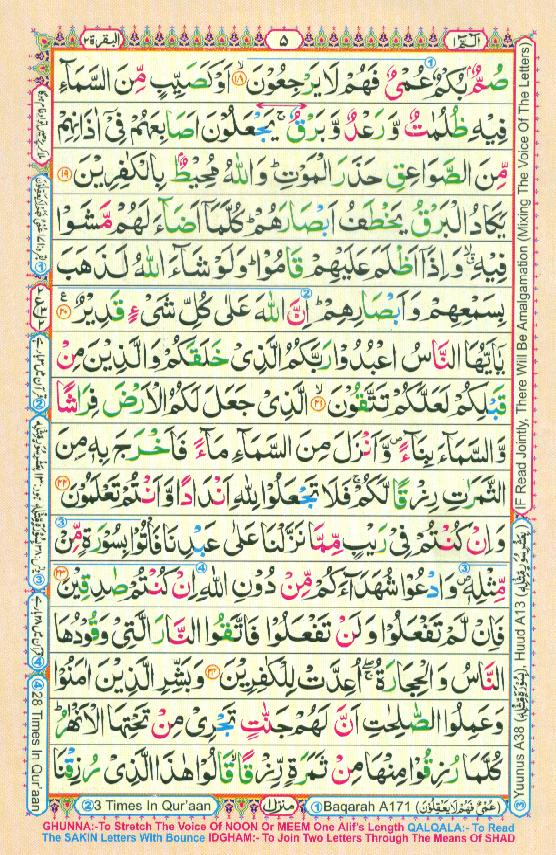 البقرة ٢
٥
الم ١
صُمٌّۢ بُكْمٌ عُمْیٌ فَهُمْ لَا یَرْجِعُوْنَ ۙ﴿۱۸﴾ اَوْ كَصَیِّبٍ مِّنَ السَّمَآءِ
فِیْهِ ظُلُمٰتٌ وَّ رَعْدٌ وَّ بَرْقٌ ۚ یَجْعَلُوْنَ اَصَابِعَهُمْ فِیْۤ اٰذَانِهِمْ
مِّنَ الصَّوَاعِقِ حَذَرَ الْمَوْتِ ؕ وَ اللّٰهُ مُحِیْطٌۢ بِالْكٰفِرِیْنَ ﴿۱۹﴾
یَكَادُ الْبَرْقُ یَخْطَفُ اَبْصَارَهُمْ ؕ كُلَّمَاۤ اَضَآءَ لَهُمْ مَّشَوْا
فِیْهِ ۙۗ وَ اِذَاۤ اَظْلَمَ عَلَیْهِمْ قَامُوْا ؕ وَ لَوْ شَآءَ اللّٰهُ لَذَهَبَ
بِسَمْعِهِمْ وَ اَبْصَارِهِمْ ؕ اِنَّ اللّٰهَ عَلٰی كُلِّ شَیْءٍ قَدِیْرٌ ﴿۲۰﴾ ع
یٰۤاَیُّهَا النَّاسُ اعْبُدُوْا رَبَّكُمُ الَّذِیْ خَلَقَكُمْ وَ الَّذِیْنَ مِنْ
قَبْلِكُمْ لَعَلَّكُمْ تَتَّقُوْنَ ۙ﴿۲۱﴾ الَّذِیْ جَعَلَ لَكُمُ الْاَرْضَ فِرَاشًا
وَّ السَّمَآءَ بِنَآءً ۪ وَّ اَنْزَلَ مِنَ السَّمَآءِ مَآءً فَاَخْرَجَ بِهٖ مِنَ
الثَّمَرٰتِ رِزْقًا لَّكُمْ ۚ فَلَا تَجْعَلُوْا لِلّٰهِ اَنْدَادًا وَّ اَنْتُمْ تَعْلَمُوْنَ ﴿۲۲﴾
وَ اِنْ كُنْتُمْ فِیْ رَیْبٍ مِّمَّا نَزَّلْنَا عَلٰی عَبْدِنَا فَاْتُوْا بِسُوْرَةٍ مِّنْ
مِّثْلِهٖ ۪ وَ ادْعُوْا شُهَدَآءَكُمْ مِّنْ دُوْنِ اللّٰهِ اِنْ كُنْتُمْ صٰدِقِیْنَ ﴿۲۳﴾
فَاِنْ لَّمْ تَفْعَلُوْا وَ لَنْ تَفْعَلُوْا فَاتَّقُوا النَّارَ الَّتِیْ وَ قُوْدُهَا
النَّاسُ وَ الْحِجَارَةُ ۖۚ اُعِدَّتْ لِلْكٰفِرِیْنَ ﴿۲۴﴾ وَ بَشِّرِ الَّذِیْنَ اٰمَنُوْا
وَ عَمِلُوا الصّٰلِحٰتِ اَنَّ لَهُمْ جَنّٰتٍ تَجْرِیْ مِنْ تَحْتِهَا الْاَنْهٰرُ ؕ
كُلَّمَا رُزِقُوْا مِنْهَا مِنْ ثَمَرَةٍ رِّزْقًا ۙ قَالُوْا هٰذَا الَّذِیْ رُزِقْنَا
IF Read Jointly, There Will Be Amalgamation (Mixing The Voice Of The Letters)
③ Yuunus A38 (بِسُوْرَةٍ مِّثْلِهٖ), Huud A13 (بِعَشْرِ سُوَرٍ مِّثْلِهٖ)
④ 28 Times In Qur'aan
② 3 Times In Qur'aan
منزل ١
① Baqarah A171 (عُمْیٌ فَهُمْ لَا یَعْقِلُوْنَ)
GHUNNA:-To Stretch The Voice Of NOON Or MEEM One Alif's Length QALQALA:- To Read
The SAKIN Letters With Bounce IDGHAM:- To Join Two Letters Through The Means Of SHAD